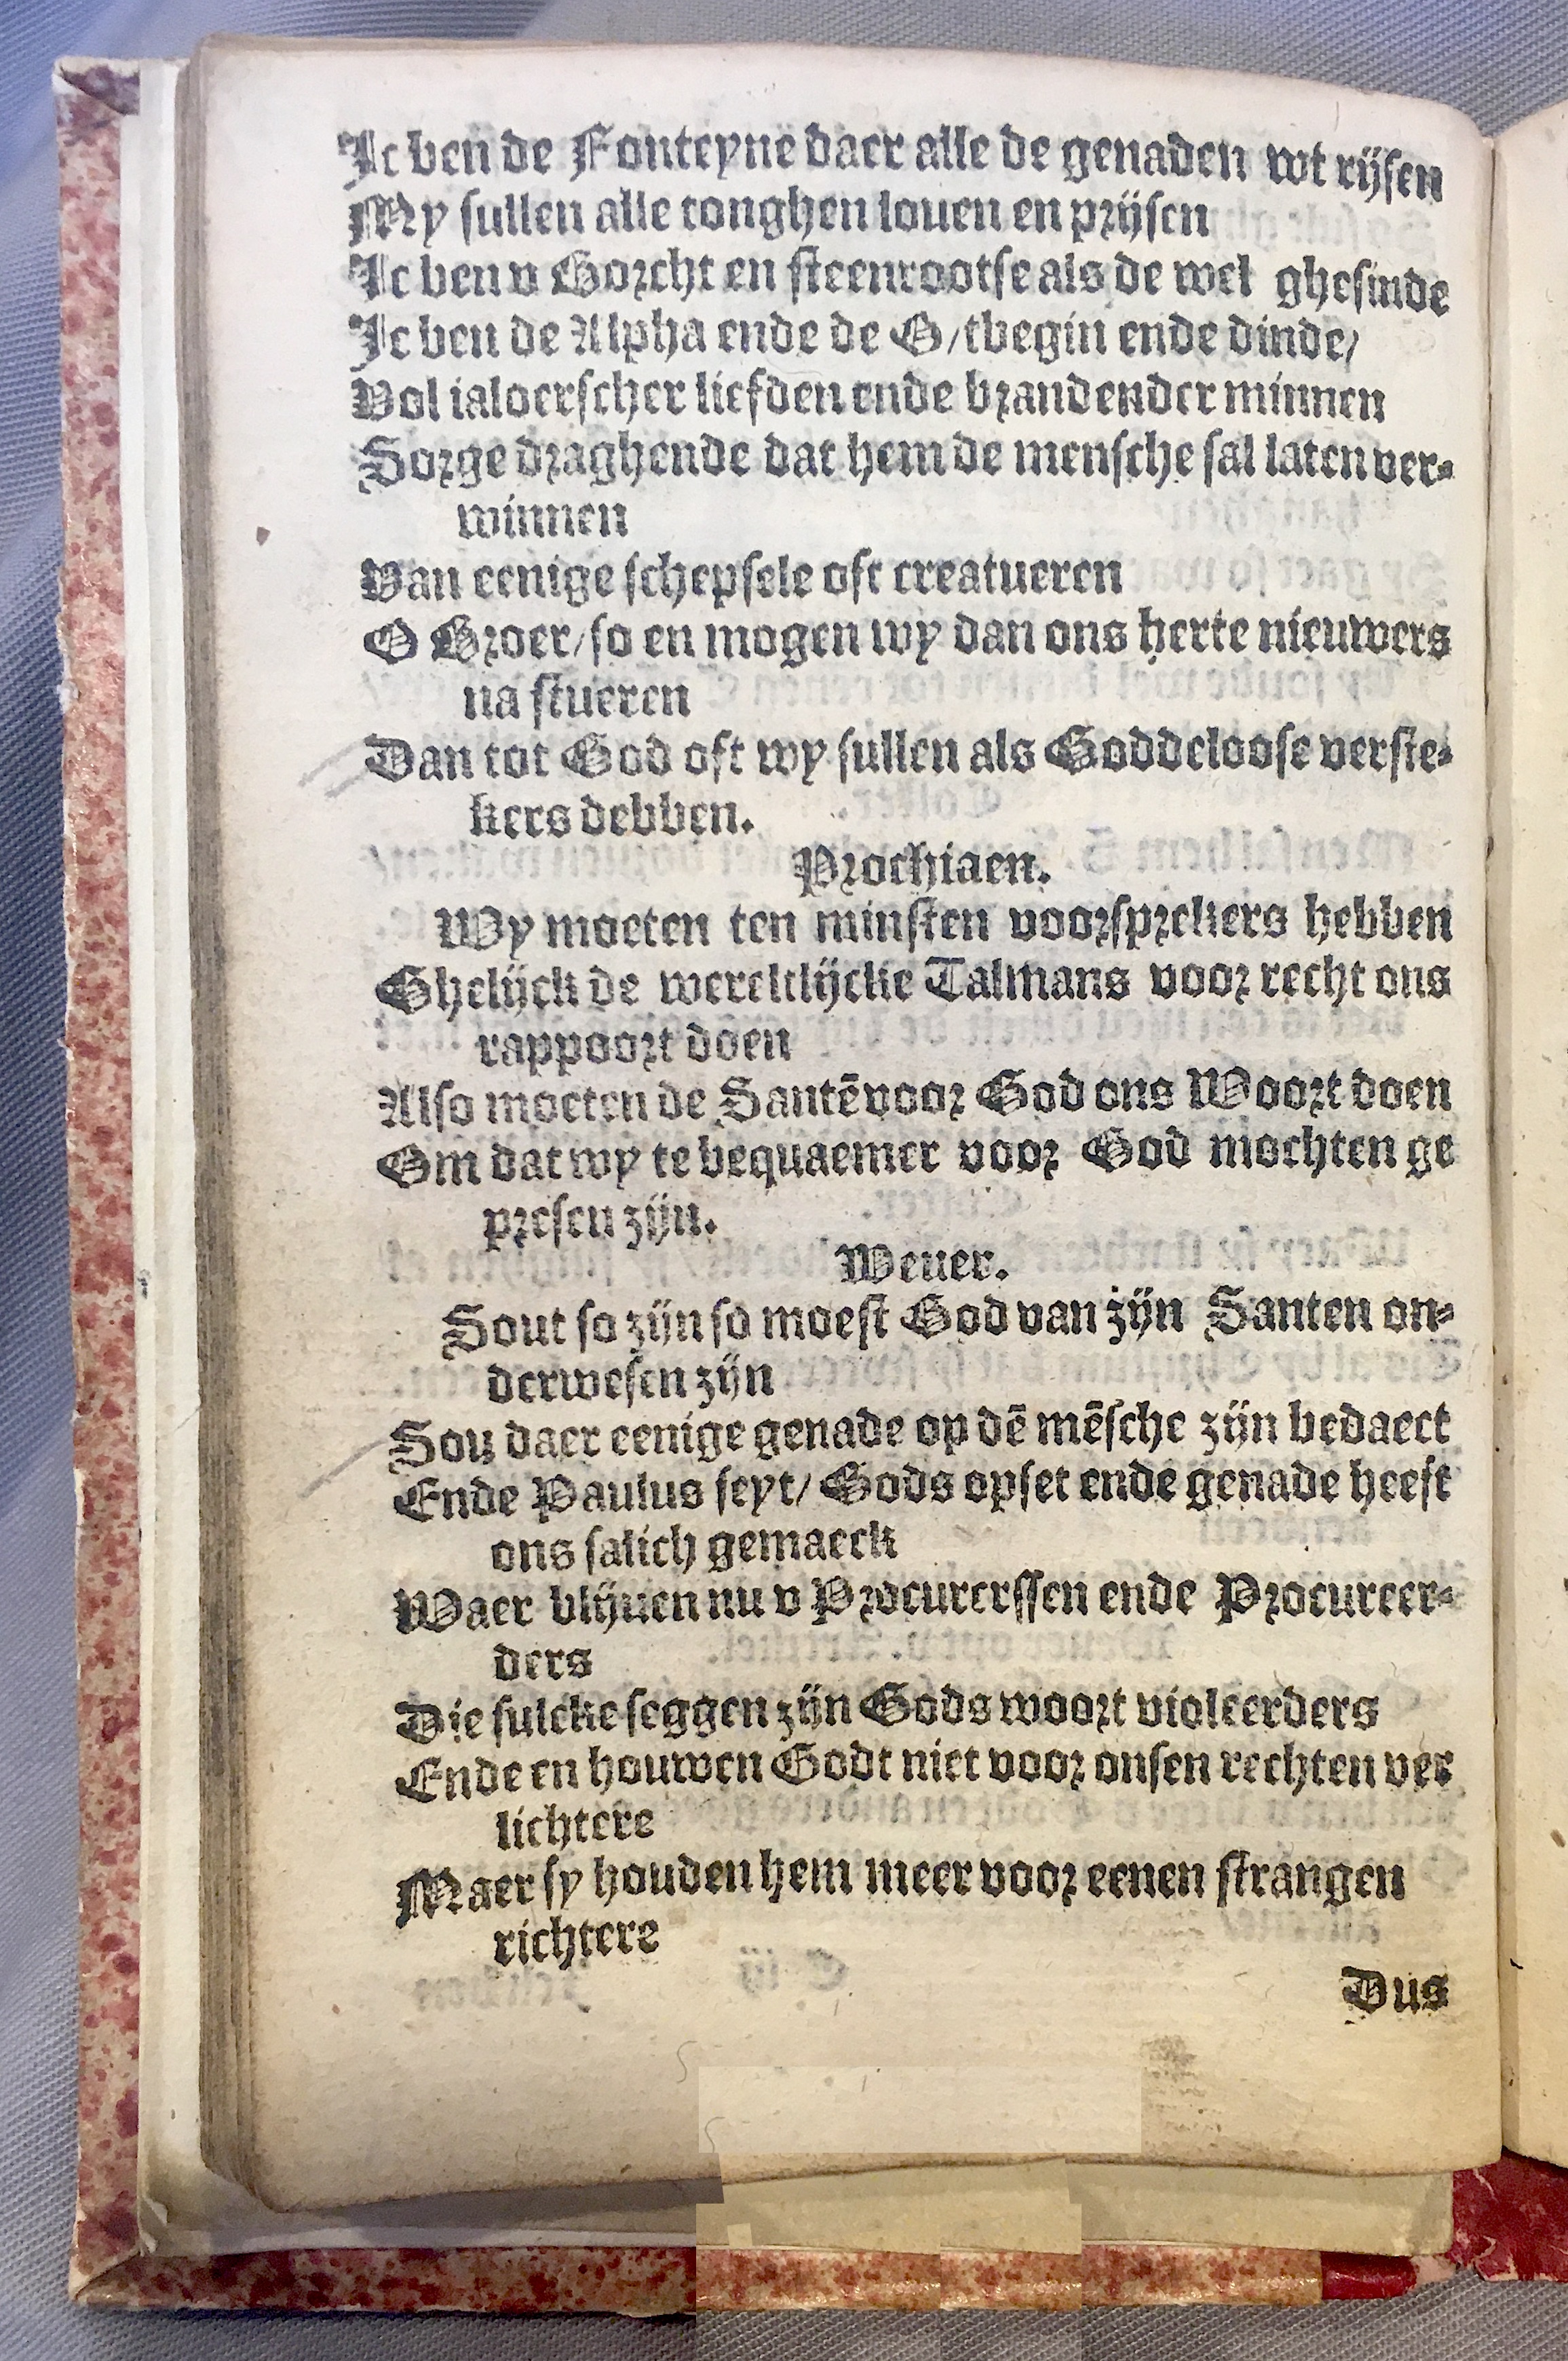 Ic ben de Fonteyne daer alle de genaden wt rijsen
My sullen alle tonghen louen en prijsen
Ic ben v Borcht en steenrootse als de wel ghesinde
Ic ben de Alpha ende de O/tbegin ende dinde/
Vol ialoerscher liefden ende brandender minnen
Sorge draghende dat hem de mensche sal laten ver-
winnen
Van eenige schepsele oft creatueren
O Broer/so en mogen wy dan ons herte nieuwers
na stueren
Dan tot God oft wy sullen als Goddeloose verste-
kers debben.
Prochiaen.
Wy moeten ten minsten voorsprekers hebben
Ghelijck de wereltlijcke Talmans voor recht ons
rappoort doen
Also moeten de Santē voor God ons Woort doen
Om dat wy te bequaemer voor God mochten ge
presen zijn.
Weuer.
Sout so zijn so moest God van zijn Santen on-
derwesen zijn
Sou daer eenige genade op dē mēsche zijn bedaect
Ende Paulus seyt/ Gods opset ende genade heeft
ons salich gemaeck
Waer blijuen nu v Procurerssen ende Procureer-
ders
Die sulcke seggen zijn Gods woort violeerders
Ende en houwen Godt niet voor onsen rechten ver
lichtere
Maer sy houden hem meer voor eenen strangen
richtere
Dus